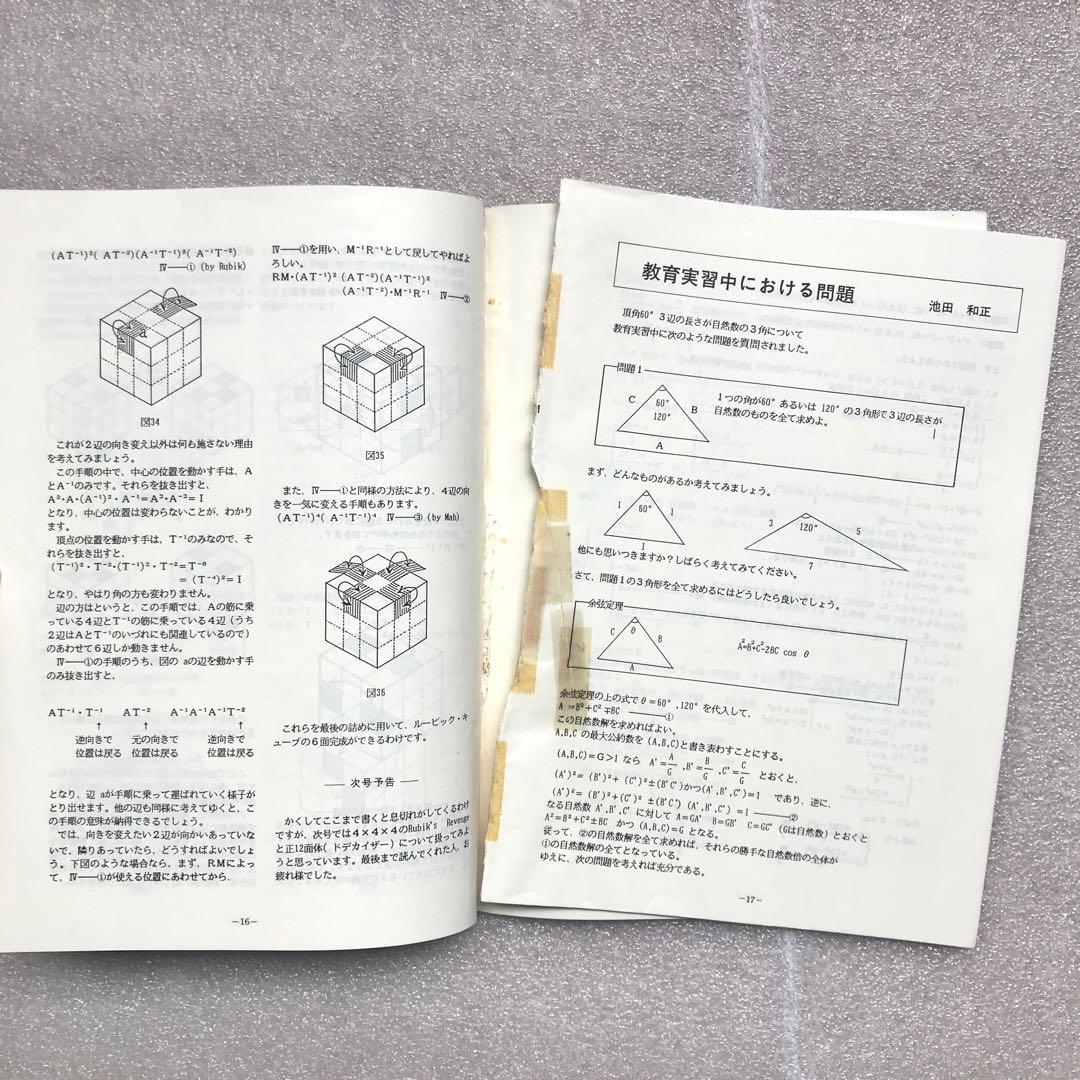 (AT⁻¹)²( AT⁻²)(A⁻¹T⁻¹)²( A⁻¹T⁻²)
Ⅳ──① (by Rubik)
図34
これが2辺の向き変え以外は何も施さない理由
を考えてみましょう。
この手順の中で、中心の位置を動かす手は、A
とA⁻¹のみです。それらを抜き出すと、
A²・A・(A⁻¹)²・A⁻¹=A³・A⁻³=I
となり、中心の位置は変わらないことが、わかり
ます。
頂点の位置を動かす手は、T⁻¹のみなので、そ
れらを抜き出すと、
(T⁻¹)²・T⁻²・(T⁻¹)²・T⁻²=T⁻⁸
= (T⁻⁴)²=I
となり、やはり角の方も変わりません。
辺の方はというと、この手順では、Aの筋に乗
っている4辺とT⁻¹の筋に乗っている4辺(うち
2辺はAとT⁻¹のいづれにも関連しているので)
のあわせて6辺しか動きません。
Ⅳ──①の手順のうち、図の aの辺を動かす手
のみ抜き出すと、
AT⁻¹・T⁻¹ AT⁻² A⁻¹A⁻¹A⁻¹T⁻²
↑ ↑ ↑
逆向きで 元の向きで 逆向きで
位置は戻る 位置は戻る 位置は戻る
となり、辺 aが手順に乗って運ばれていく様子が
とり出せます。他の辺も同様に考えてゆくと、こ
の手順の意味が納得できるでしょう。
では、向きを変えたい2辺が向かいあっていな
いで、隣りあっていたら、どうすればよいでしょ
う。下図のような場合なら、まず、RMによっ
て、Ⅳ──①が使える位置にあわせてから、
－16－
Ⅳ──①を用い、M⁻¹R⁻¹として戻してやればよ
ろしい。
RM・(AT⁻¹)² (AT⁻²)(A⁻¹T⁻¹)²
(A⁻¹T⁻²)・M⁻¹R⁻¹ Ⅳ──②
図35
また、Ⅳ──①と同様の方法により、4辺の向
きを一気に変える手順もあります。
(AT⁻¹)⁴( A⁻¹T⁻¹)⁴ Ⅳ──③ (by Mah)
図36
これらを最後の詰めに用いて、ルービック・キ
ューブの6面完成ができるわけです。
── 次号予告 ──
かくしてここまで書くと息切れがしてくるわけ
ですが、次号では4×4×4のRubik's Revenge
と正12面体(ドデカイザー)について扱ってみよ
うと思っています。最後まで読んでくれた人、お
疲れ様でした。
教育実習中における問題
池田 和正
頂角60° 3辺の長さが自然数の3角について
教育実習中に次のような問題を質問されました。
問題1
C 60° 120° B
A
1つの角が60° あるいは 120° の3角形で3辺の長さが
自然数のものを全て求めよ。
まず、どんなものがあるか考えてみましょう。
1 60° 1
1
3 120° 5
7
他にも思いつきますか?しばらく考えてみてください。
さて、問題1の3角形を全て求めるにはどうしたら良いでしょう。
余弦定理
C θ B
A
A²=B²+C²-2BC cos θ
余弦定理の上の式でθ=60° ,120° を代入して、
A =B²+C²∓BC ────①
この自然数解を求めればよい。
A,B,C の最大公約数を (A,B,C)と書き表わすことにする。
(A,B,C)=G>1 なら A'=A/G ,B'=B/G ,C'=C/G とおくと、
(A')²= (B')²+ (C')²±(B'C')かつ(A',B',C')=1 であり、逆に、
(A')²= (B')²+(C')² ±(B'C') (A',B',C') =1────②
なる自然数 A',B',C' に対して A=GA' B=GB' C=GC' (Gは自然数)とおくと
A²=B²+C²±BC かつ (A,B,C)=G となる。
従って、②の自然数解を全て求めれば、それらの勝手な自然数倍の全体が
①の自然数解の全てとなっている。
ゆえに、次の問題を考えれば充分である。
－17－